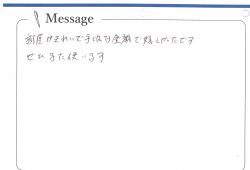 Message
部屋がきれいで手頃な金額で嬉しかったです
ぜひまた使います